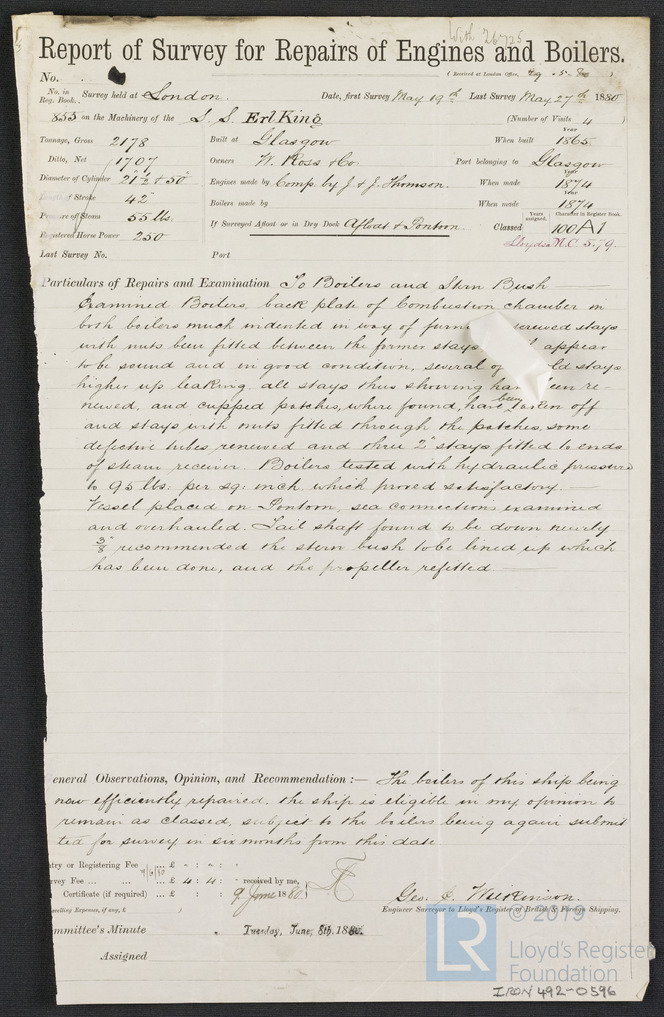 With 26725
Report of Survey for Repairs of Engines and Boilers.
No. (Received at London Office, 29.5.80 )
No. in Reg. Book. Survey held at London. Date, first Survey May 19th Last Survey May 27th 1880
853 on the Machinery of the S. S. Erl King (Number of Visits 4 )
Tonnage, Gross 2178 Built at Glasgow When built Year 1865
Ditto, Net 1707 Owners W. Ross & Co. Port belonging to Glasgow
Diameter of Cylinder 21½ & 50" Engines made by Comp. by J. & J. Thomson. When made Year 1874
Stroke 42" Boilers made by When made Year 1874
Pressure of Steam 55 lbs. If Surveyed Afloat or in Dry Dock Afloat & Pontoon. Classed Years assigned. Character in Register Book. 100 A1
Registered Horse Power 250 Lloyds M.C. 5.79.
Last Survey No. Port
Particulars of Repairs and Examination To Boilers and Stern Bush
Examined Boilers, back plate of Combustion chamber in
both boilers much indented in way of screwed stays
with nuts been fitted between the former stays appear
to be sound and in good condition, several of ld stays
higher up leaking. all stays thus showing een re-
newed, and cupped patches, where found, have been taken off
and stays with nuts fitted through the patches, some
defective tubes renewed and three 2" stays fitted to ends
of steam receiver. Boilers tested with hydraulic pressure
to 95 lbs: per sq: inch which proved satisfactory.
Vessel placed on Pontoon, sea connections examined
and overhauled. Tail shaft found to be down nearly
3/8" recommended the stern bush to be lined up which
has been done, and the propeller refitted.
eneral Observations, Opinion, and Recommendation :— The boilers of this ship being
now efficiently repaired, the ship is eligible in my opinion to
remain as classed, subject to the boilers being again submit
ted for survey in six months from this date
ntry or Registering Fee ... £ " : " :
vey Fee ... ... £ 4 : 4 : received by me,
Certificate (if required) ... £ : : 9 June 1880
avelling Expenses, if any, £ ) Geo. C. Wilkinson.
Engineer Surveyor to Lloyd's Register of British & Foreign Shipping.
mmittee's Minute Tuesday, June, 8th, 1880.
Assigned
© 2019
LR
Lloyd's Register
Foundation
IRON 492-0596